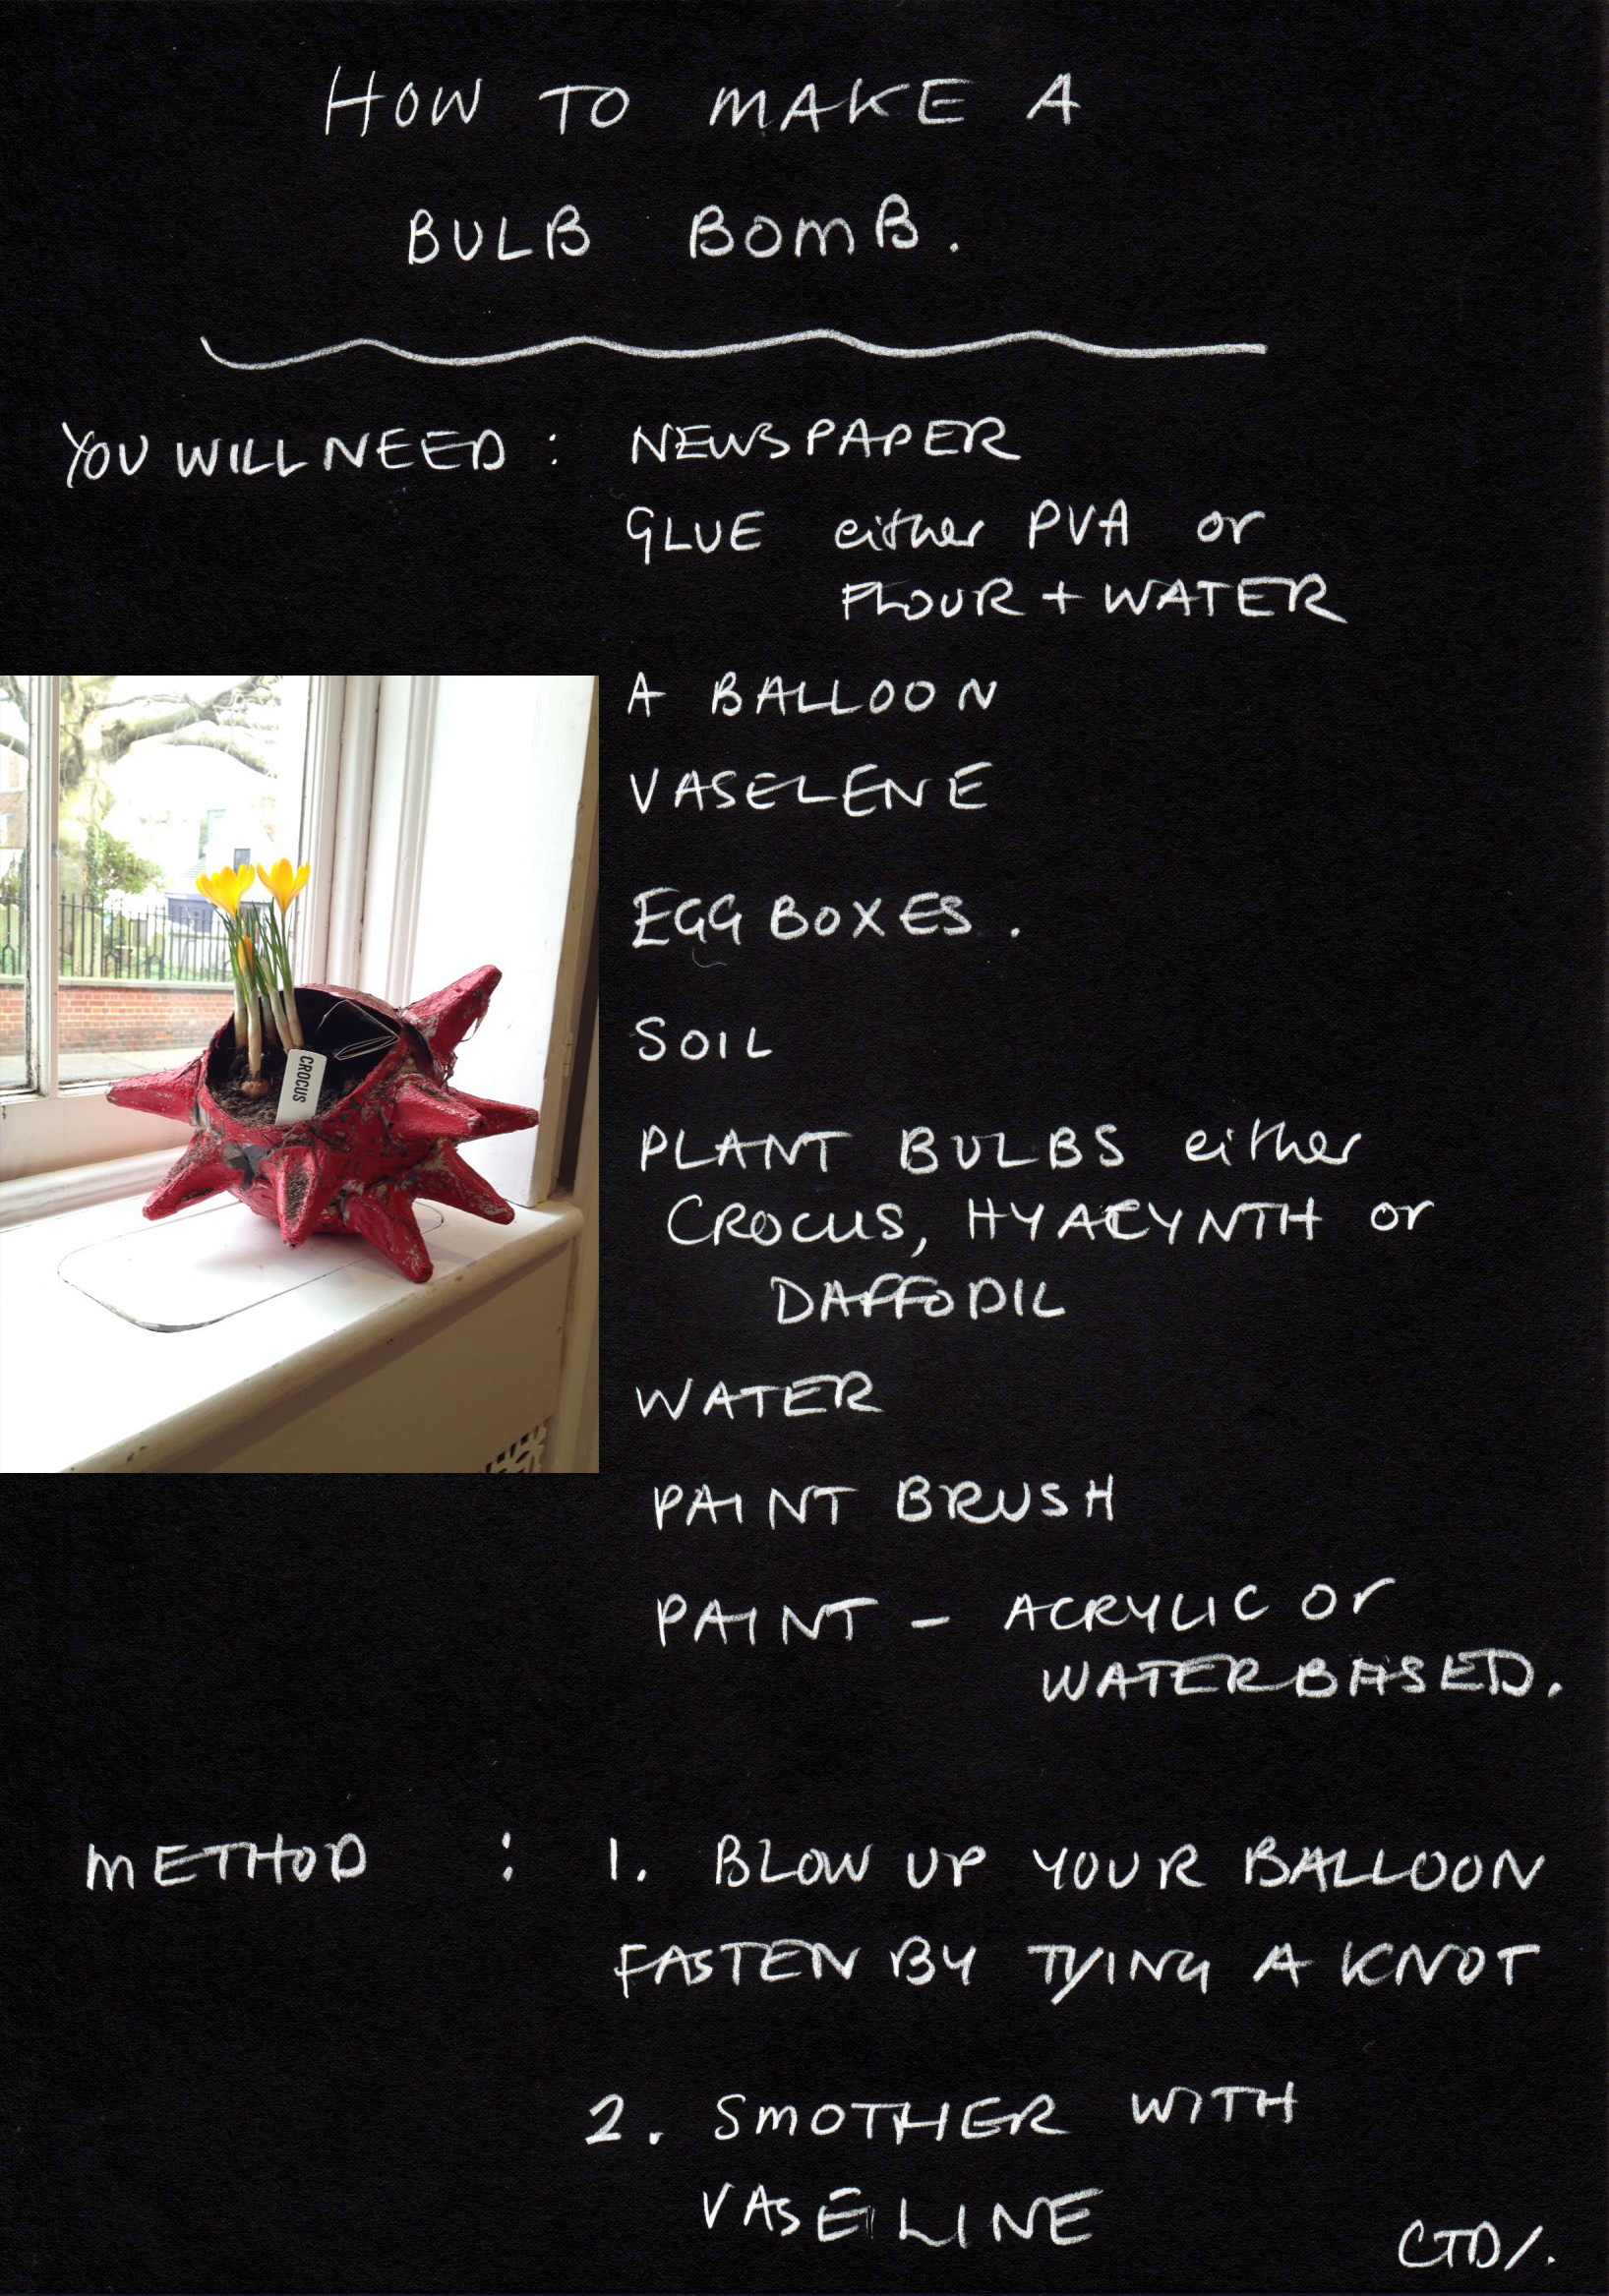 HOW TO MAKE A
BULB BOMB.
YOU WILL NEED : NEWSPAPER
GLUE either PVA or
FLOUR + WATER
A BALLOON
VASELENE
EGG BOXES .
SOIL
PLANT BULBS either
CROCUS, HYACYNTH or
DAFFODIL
WATER
PAINT BRUSH
PAINT - ACRYLIC or
WATERBASED.
CROCUS
METHOD : 1. BLOW UP YOUR BALLOON
FASTEN BY TYING A KNOT
2. SMOTHER WITH
VASELINE
CTD/.